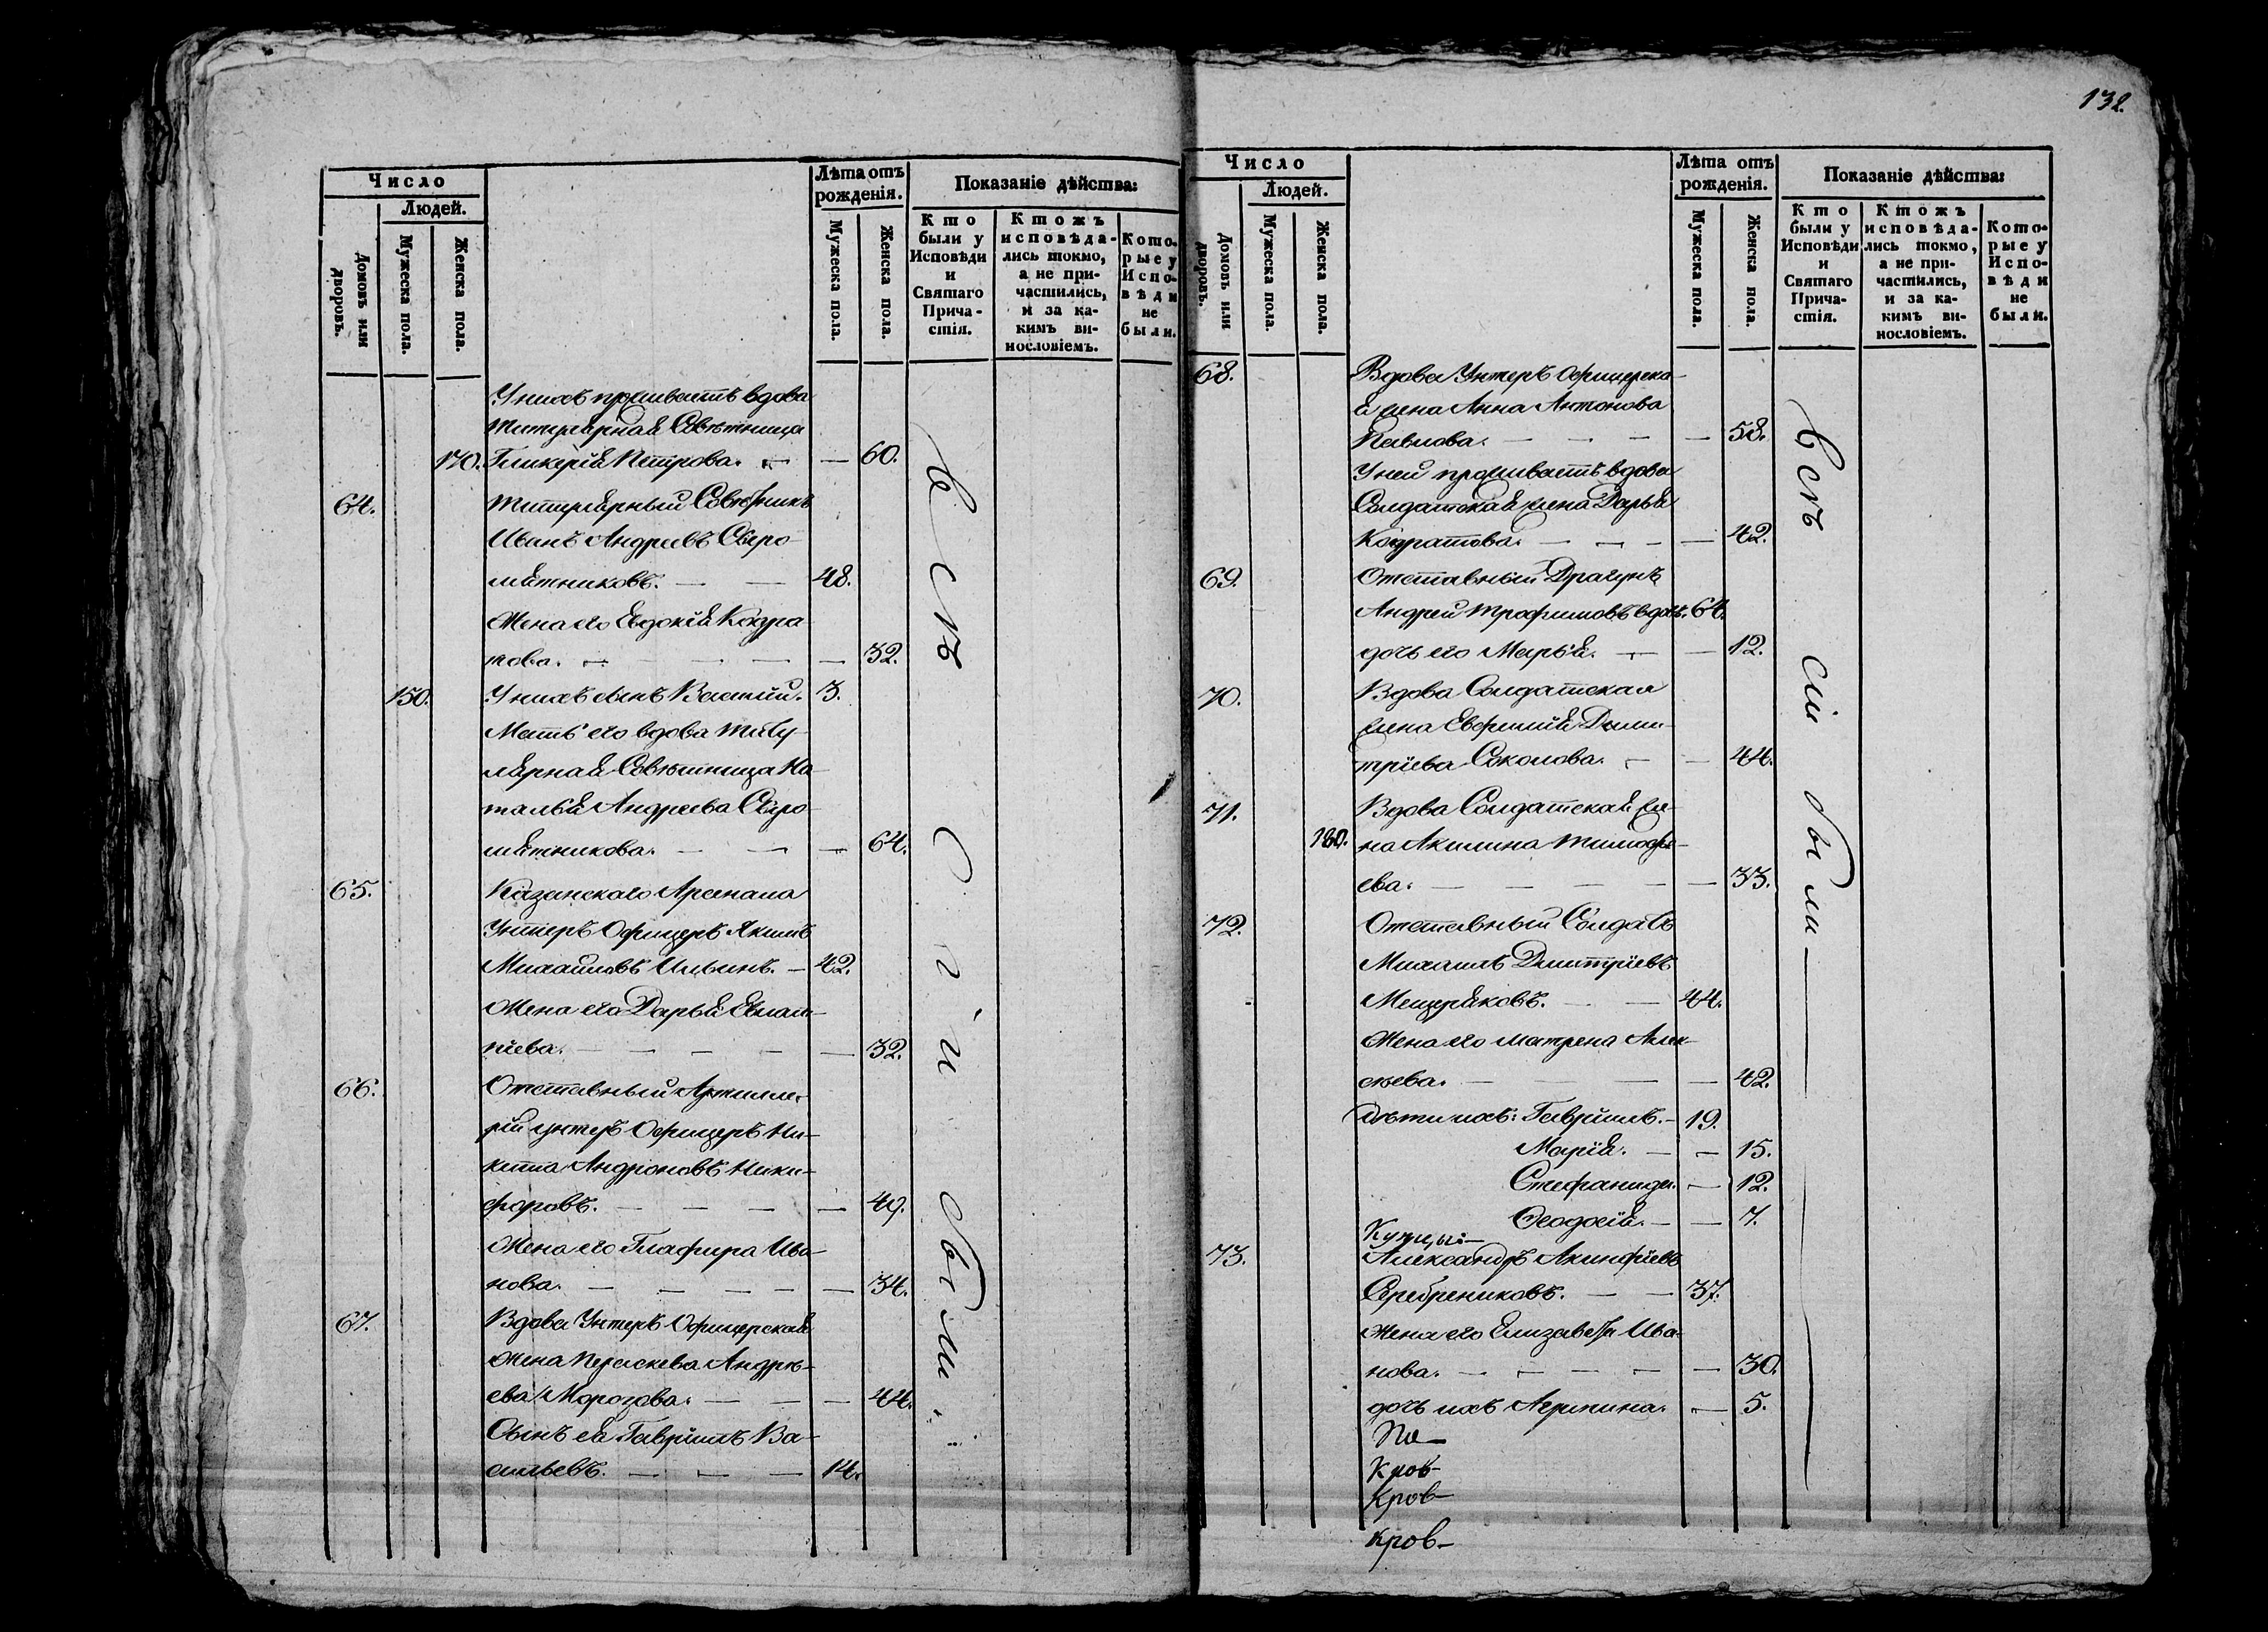 132.
Число
Людей.
Домовъ или дворовъ.
Мужеска пола.
Женска пола.
Лѣта отъ
рожденія.
Мужеска пола.
Женска пола.
Показаніе дѣйства:
Кто
были у
Исповѣди
и
Святаго
Прича-
стія.
Ктожъ
исповѣда-
лись токмо,
а не при-
частились,
и за ка-
кимъ ви-
нословіемъ.
Кото-
рые у
Испо-
вѣди
не
были.
У нихъ проживаетъ вдова
Титулярная Совѣтница
170. Гликерія Петрова. — — 60.
64. Титулярный Совѣтникъ
Иванъ Андреевъ Сыро-
мятниковъ. — — 48.
Жена его Евдокія Кодра
това. — — — — 32.
150. У нихъ сынъ Василій. 3.
Мать его вдова Титу-
лярная Совѣтница На-
талья Андреева Сыро-
мятникова. — — — 64.
65. Казанскаго Арсенала
Унтеръ Офицеръ Якимъ
Михайловъ Ильинъ. — 42.
Жена его Дарья Евлам-
піева. — — — — 32.
66. Отставный Артилле-
ріи унтеръ Офицеръ Ни-
кита Андроновъ Ники-
форовъ. — — — — 49.
Жена его Глафира Ива-
нова. — — — — 34.
67. Вдова Унтеръ Офицерская
жена Параскева Андре-
ева Морозова. — — — 44.
Сынъ ея Гавріилъ Ва-
сильевъ. — — — 14.
Всѣ
сіи
были
Число
Людей.
Домовъ или дворовъ.
Мужеска пола.
Женска пола.
Лѣта отъ
рожденія.
Мужеска пола.
Женска пола.
Показаніе дѣйства:
Кто
были у
Исповѣди
и
Святаго
Прича-
стія.
Ктожъ
исповѣда-
лись токмо,
а не при-
частились,
и за ка-
кимъ ви-
нословіемъ.
Кото-
рые у
Испо-
вѣди
не
были.
68. Вдова Унтеръ Офицерска-
я жена Анна Антонова
Павлова. — — — — 58.
У ней проживаетъ вдова
Солдатская жена Дарья
Кодратова. — — — — 42.
69. Отставный Драгунъ
Андрей Трофимовъ вдов. 64.
дочь его Марья. — — 12.
70. Вдова Солдатская
жена Евфимія Дими-
тріева Соколова. — — 44.
71. Вдова Солдатская же-
180. на Акилина Тимофе-
ева. — — — — — 33.
72. Отставный Солдатъ
Михаилъ Димитріевъ
Мещеряковъ. — — 44.
Жена его Матрена Алек-
сѣева. — — — — 42.
Дѣти ихъ: Гавріилъ. — 19.
Марія. — — 15.
Стефанида. — 12.
Ѳеодосія. — — 7.
Купцы:
73. Александръ Акинфіевъ
Серебрениковъ. — — 37.
Жена его Елизавета Ива-
нова. — — — — — 30.
дочь ихъ Агрипина. — 5.
По
Кров-
Кров-
кров-
Всѣ
сіи
были